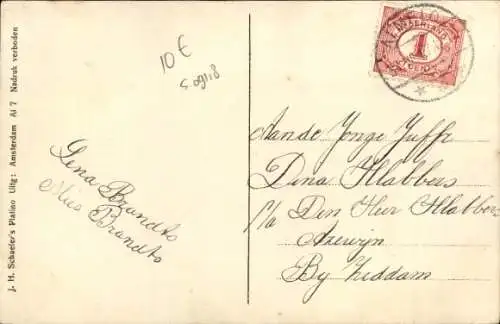 J. H. Schaefer's Platino Uitg: Amsterdam Al 7 Nadruk verboden
10€
S 0918
Lena Brandts
Mica Brandts
NEDERLAND
1
CENT
Aande Jonge Juffr
Dina Hlabbers
p/a Den Heer Hlabbers
Azewijn
By Zeddam